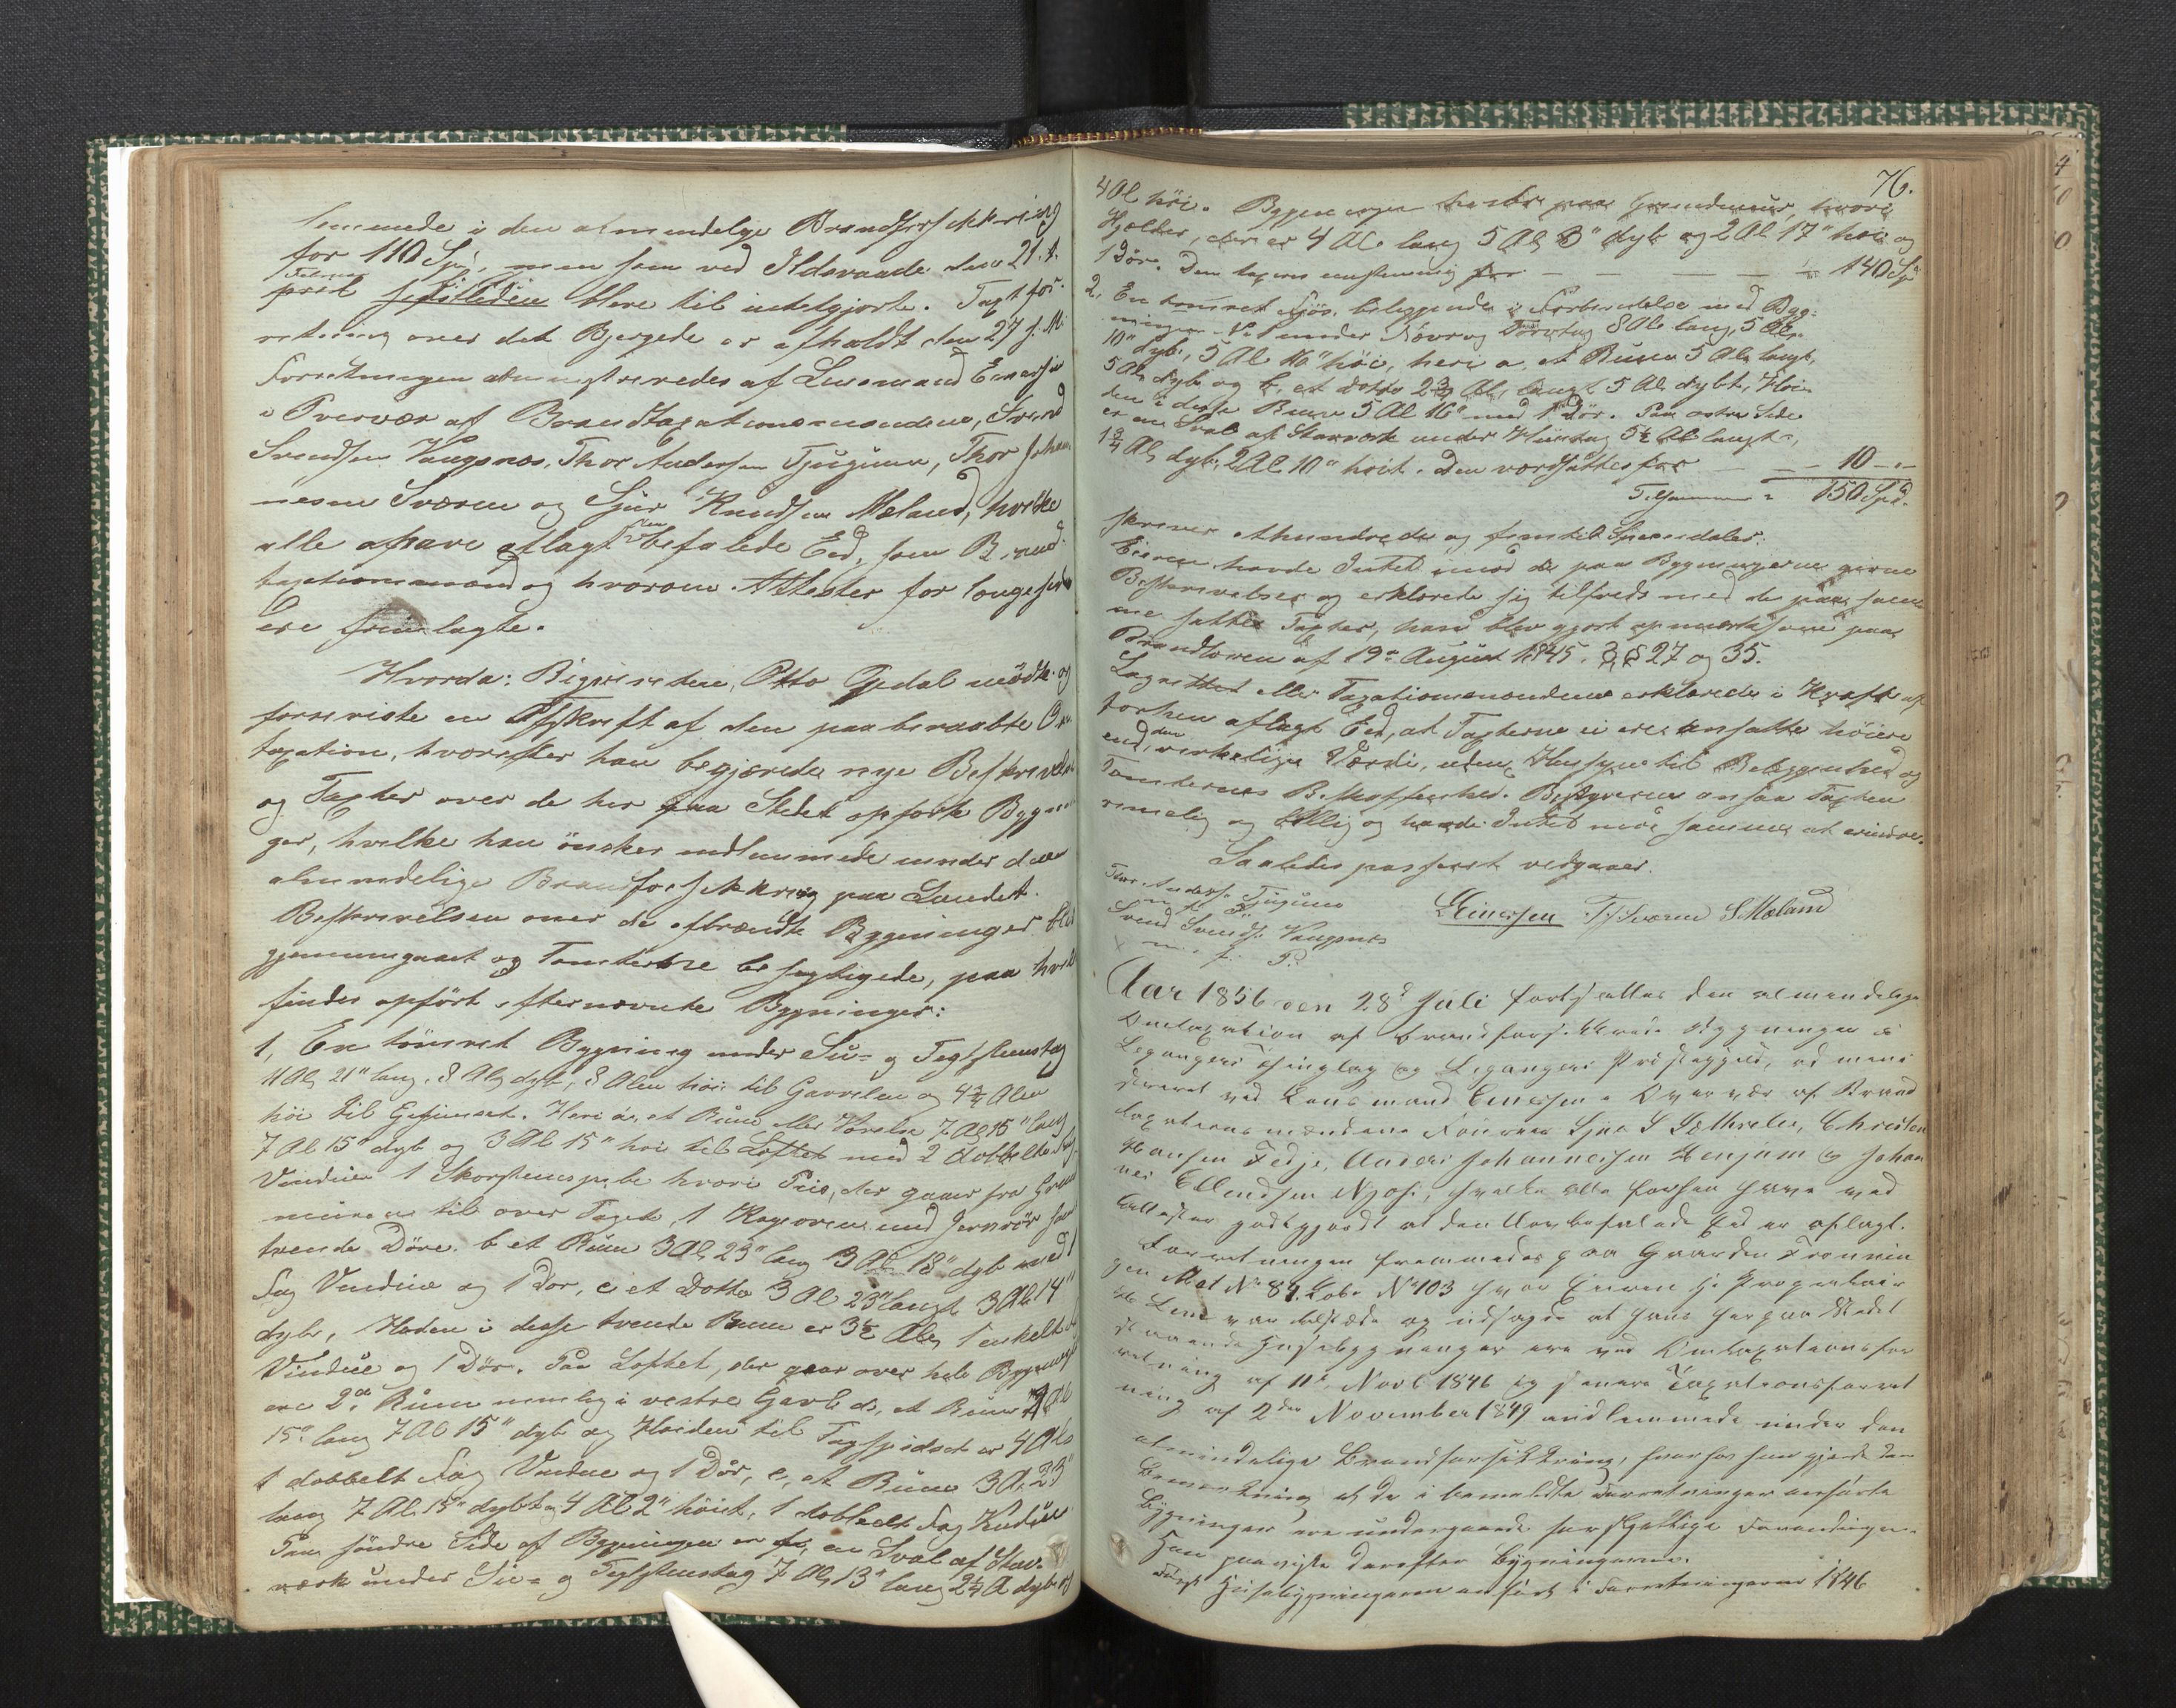 lemmede i den almindelige Brandforsikkring
for 110 Spd, men som ved Ildsvaade den 21. A-
pril sidstleden bleve til intetgjorte. Taxtfor-
retning over det Bjergede er afholdt den 27 f. M.
Forretningen administreredes af Lensmand Einersen
i Overvær af Brandtaxationsmændene, Svend
Svendsen Vangsnes, Thor Andersen Tjugum, Thor Johan-
nesen Sværen og Sjur Knudsen Mæland, hvilke
alle have aflagt den befalede Eed, som Brand-
taxationsmænd og hvorom Attester for længesiden
ere fremlagte.
Hvorda: Bigpresten, Otto Gedal mødte og
foreviste en Afskrift af den paaberaabte Br
taxation, hvorefter han begjærede nye Beskrivelse
og Taxter over de her paa Stedet opførte Bygnin
ger, hvilke han ønsker indlemmede under den
almindelige Brandforsikkring paa Landet.
Beskrivelsen over de afbrændte Bygninger blev
gjennemgaaet og Tomterne besigtigede, paa hvilke
findes opført efternævnte Bygninger:
1, En tømret Bygning under Su- og Teglsteenstag
11 Al, 21" lang, 8 Al, dyb, 8 Alen høi til Gavelen og 4¾ Alen
høi til Gesimset. Heri a, et Rum eller Værelse 7 Al 15" lang
7 Al 15" dyb og 3 Al 15" høi til Loftet med 2 dobbelte Fag
Vinduer 1 Skorsteenspibe hvori Piis, der gaaer fra Grund
muren til over Taget, 1 Kogeovn med Jernrør samt
tvende Døre. b et Rum 3 Al, 23" lang 3 Al 18" dyb med 1
Fag Vindue og 1 Dør, c, et Dotto 3 Al 23" langt 3 Al 14"
dyb, Høiden i disse tvende Rum er 3½ Al, 1 enkelt
Vindue og 1 Dør. Paa Loftet, der gaar over hele Bygningen
ere 2de Rum nemlig i vestre Gavl d, et Rum 7 Al
15" lang 7 Al 15" dyb og Høiden til Tagspidset er 4 Al
1 dobbelt Fag Vindue og 1 Dør, e, et Rum 3 Al 23"
lang 7 Al. 15" dybt og 4 Al 2" høit, 1 dobbelt Fag Vindue
Paa søndre Side af Bygningen er en Sval af Stav-
værk under Su- og Teglsteenstag 7 Al, 13" lang 2¼ A dyb og
76.
4 Al høi. Bygningen hviler paa Grundmuur, hvori
Kjelder, der er 4 Al. lang 5 Al, 3" dyb og 2 Al 17" høi og
1 Dør. Den taxeres eenstemmig for — — — 140 Spd
2, En tømret Fjøs, beliggende i Forbindelse med Byg-
ningen No 1 under Næver og Torvtag 8 Al. lang, 5 Al,
10" dyb, 5 Al 16" høi, heri a, et Rum 5 Al, langt,
5 Al, dyb og b, et dotto 2¾ Al, langt 5 Al, dybt, Høi-
den i disse Rum 5 Al 16" med 1 Dør. Paa østre Side
er en Sval af Stavværk under Huustag 5½ Al langt,
1¾ Al, dyb, 2 Al 10" høit. Den værdsættes for — — 10 -,-
Tilsammen = 150 Spd.
skriver et hundrede og femti Speciedaler.
Eieren havde Intet imod de paa Bygningerne givne
Beskrivelser og erklærede sig tilfreds med de paa sam-
me satte Taxter, han blev gjort opmærksom paa
Brandloven af 19de August 1845. §§ 27 og 35.
Lagrettet eller Taxationsmændene erklærede i Kraft af
forhen aflagt Eed, at Taxterne ei ere ansatte høiere
end den virkelige Værdi, uden Hensyn til Beliggenhed og
Tomternes Beskaffenhed. Bestyreren ansaa Taxten
rimelig og billig og havde Intet mod samme at erindre.
Saaledes passeret vedgaaer.
Thor Anders: Tjugum
m f P
Svend Svends: Vangsnes
x m. f: P:
LEinersen T J Sværen S Mæland
Aar 1856 den 28de Juli fortsattes den almindelige
Omtaxation af brandforsikkrede Bygninger i
Leganger Thinglag og Legangers Præstegjeld, admini-
streret ved Lensmand Einersen i Overvær af Brand
taxationsmændene Sjur S Hethvelen, Christen
Hansen Fedje, Anders Johannessen Henjum og Johan
nes Ellendsen Njøs, hvilke alle forhen have ved
Attester godtgjordt at den lovbefalede Eed er aflagt.
Forretningen fremmedes paa Gaarden Frønnin
gen Mat No 84. Løbe No 103 hvor Eieren Hr Proprietair
Lem var tilstede og udsagde at hans her paa Stedet
staaende Huusebygninger ere ved Omtaxationsfor
retning af 11te Novbr 1846 og senere Taxationsforret
ning af 2den November 1849 indlemmede under den
almindelige Brandforsikkring, hvorfor han gjorde den
Bemærkning at de i bemeldte Forretninger anførte
Bygninger ere undergaaede forskjellige Forandringer.
Han paaviste derefter Bygningerne.
Først Huusebygningerne anført i Forretningerne 1846